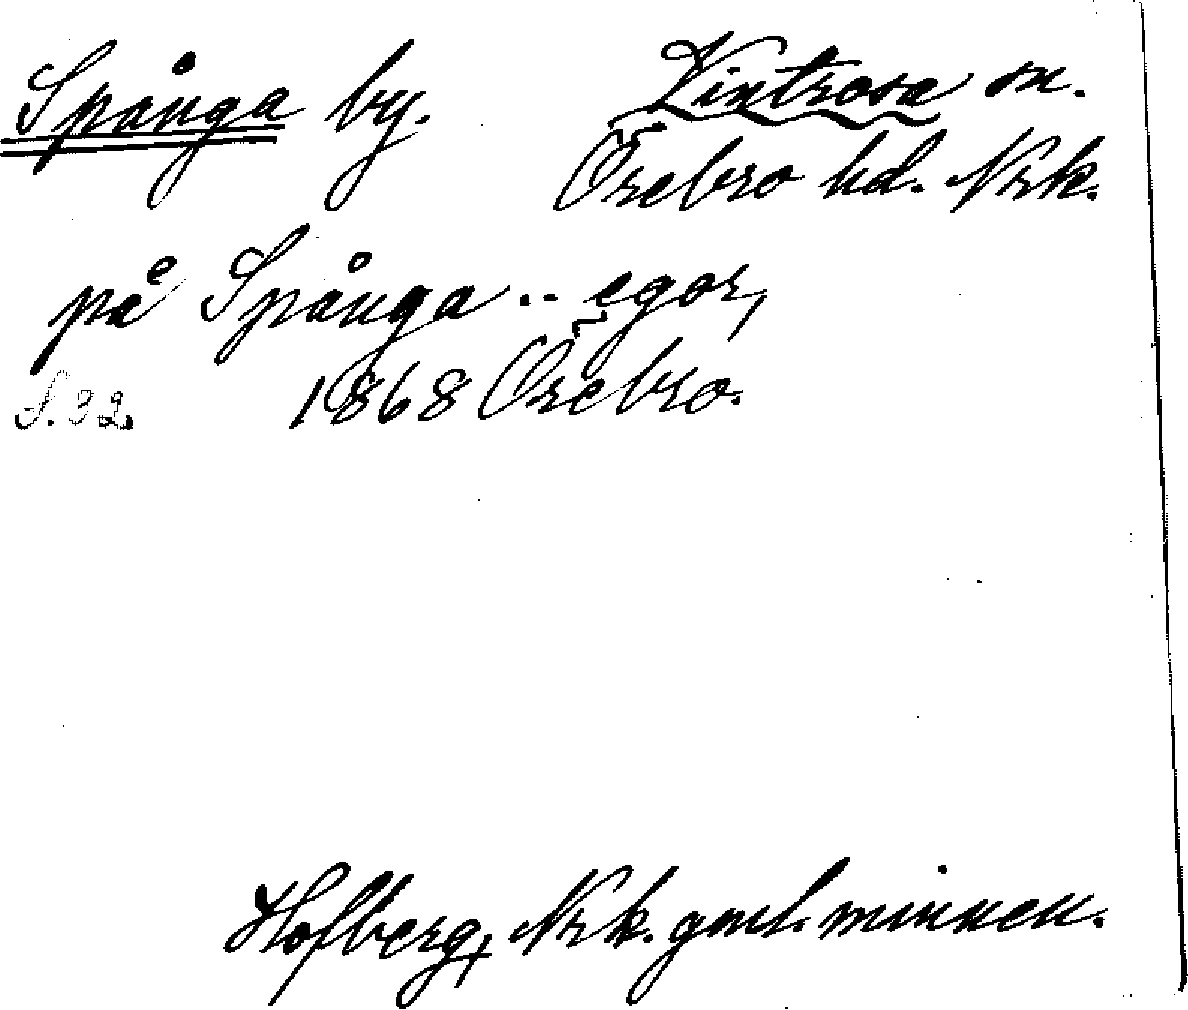 Spånga by. Vintrosa sn.
Örebro hd. Nrk.
på Spånga .. egor,
S. 32 1868 Örebro.
Hofberg, Nrk. gml. minnen.